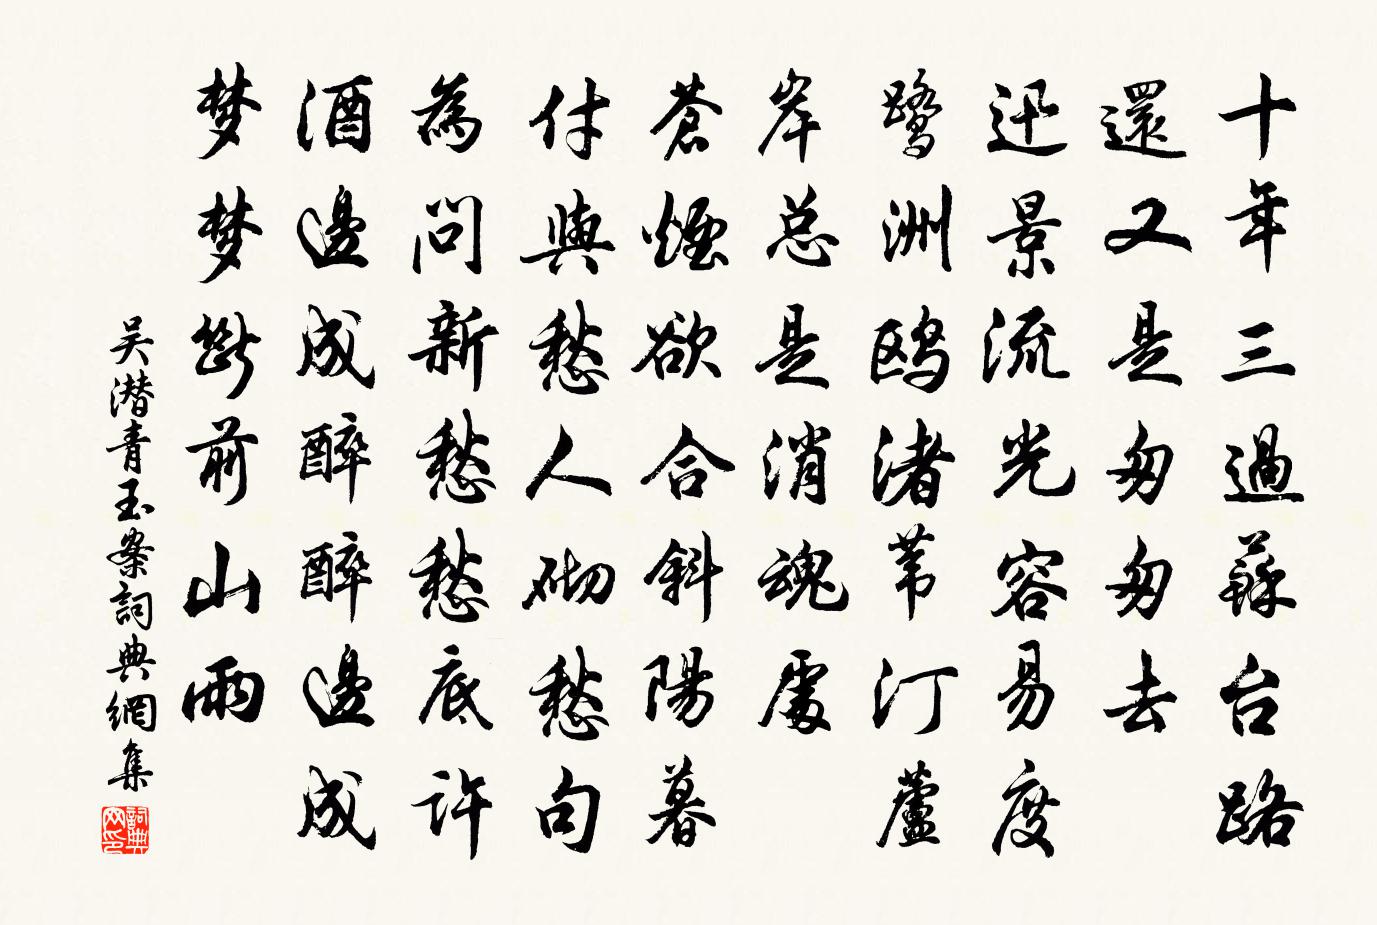 十年三過蘇台路
還又是匆匆去
迅景流光容易度
鷺洲鸥渚苇汀蘆
岸总是消魂處
蒼煙欲合斜陽暮
付與愁人砌愁句
為問新愁愁底許
酒邊成醉醉邊成
梦梦斷前山雨
吴潜青玉案詞典網集
詞典网印